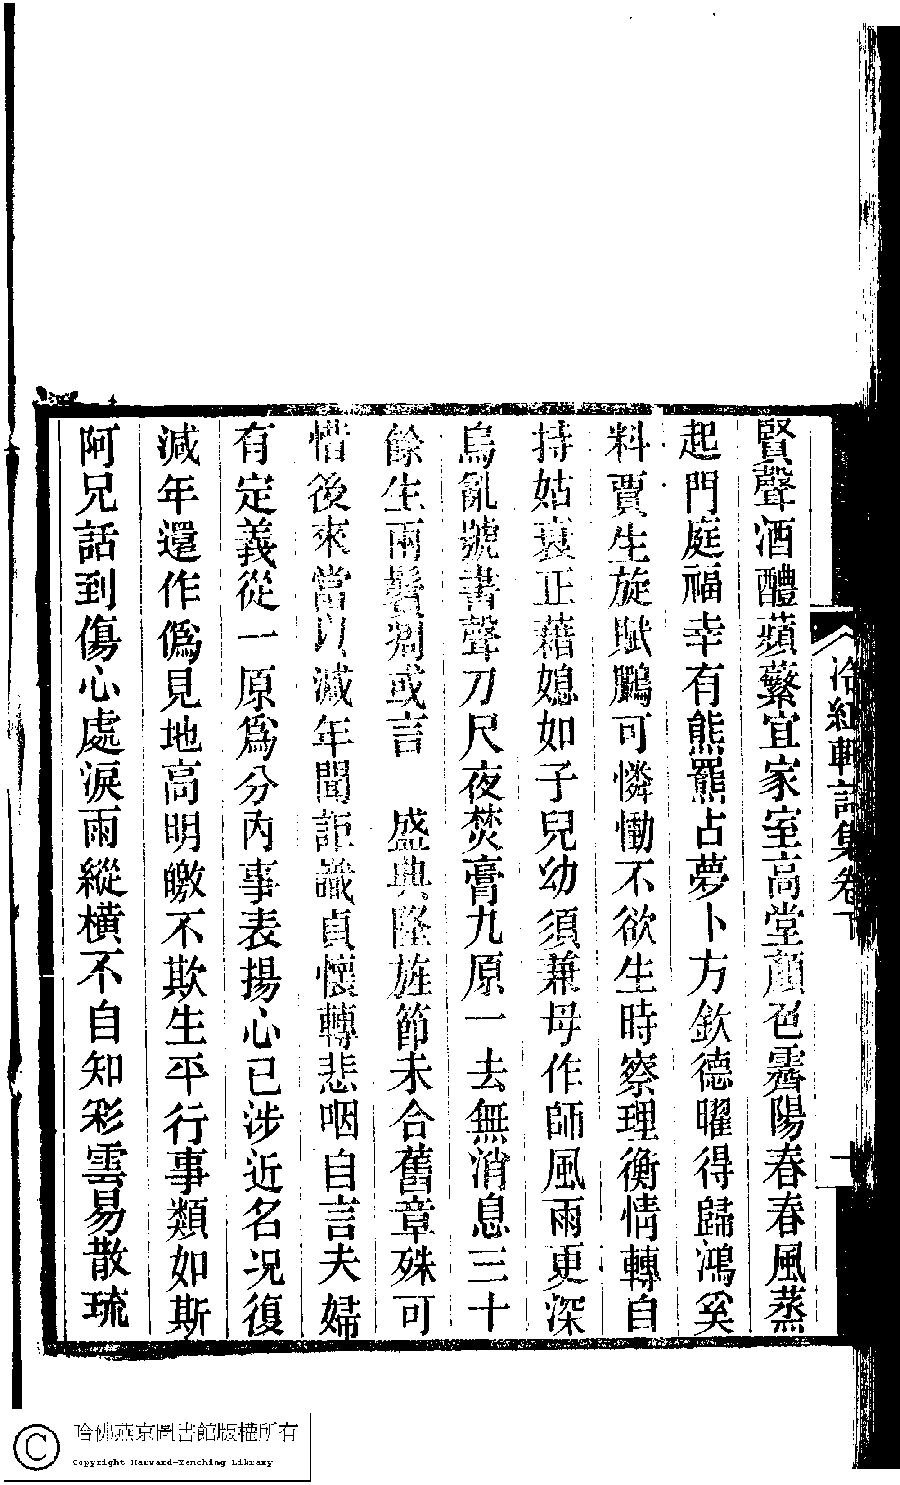 賢聲酒醴蘋蘩宜家室高堂顏色霽陽春春風蒸
起門庭福幸有熊羆占夢卜方欽德曜得歸鴻奚
料賈生旋賦鵩可憐慟不欲生時察理衡情轉自
持姑衰正藉媳如子兒幼須兼母作師風雨更深
烏亂號書聲刀尺夜焚膏九原一去無消息三十
餘生兩鬢凋或言　盛典隆旌節未合舊章殊可
惜後來當以減年聞詎識貞懷轉悲咽自言夫婦
有定義從一原爲分內事表揚心已涉近名况復
減年還作僞見地高明皦不欺生平行事類如斯
阿兄話到傷心處淚雨縱橫不自知彩雲易散琉
紅軒詩集卷下
十
哈佛燕京圖書館版權所有
Copyright Harvard-Yenching Library